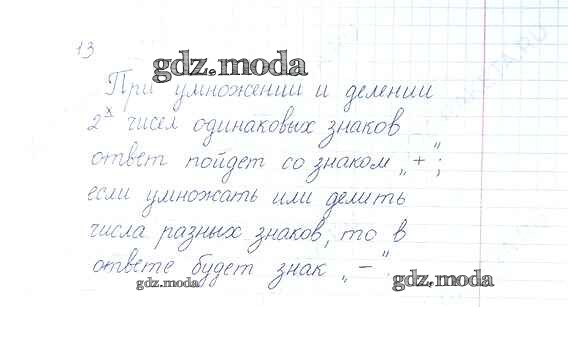 13
gdz.moda
При умножении и делении
2х чисел одинаковых знаков
ответ пойдет со знаком „+";
если умножать или делить
числа разных знаков, то в
ответе будет знак „−".
gdz.moda
gdz.moda